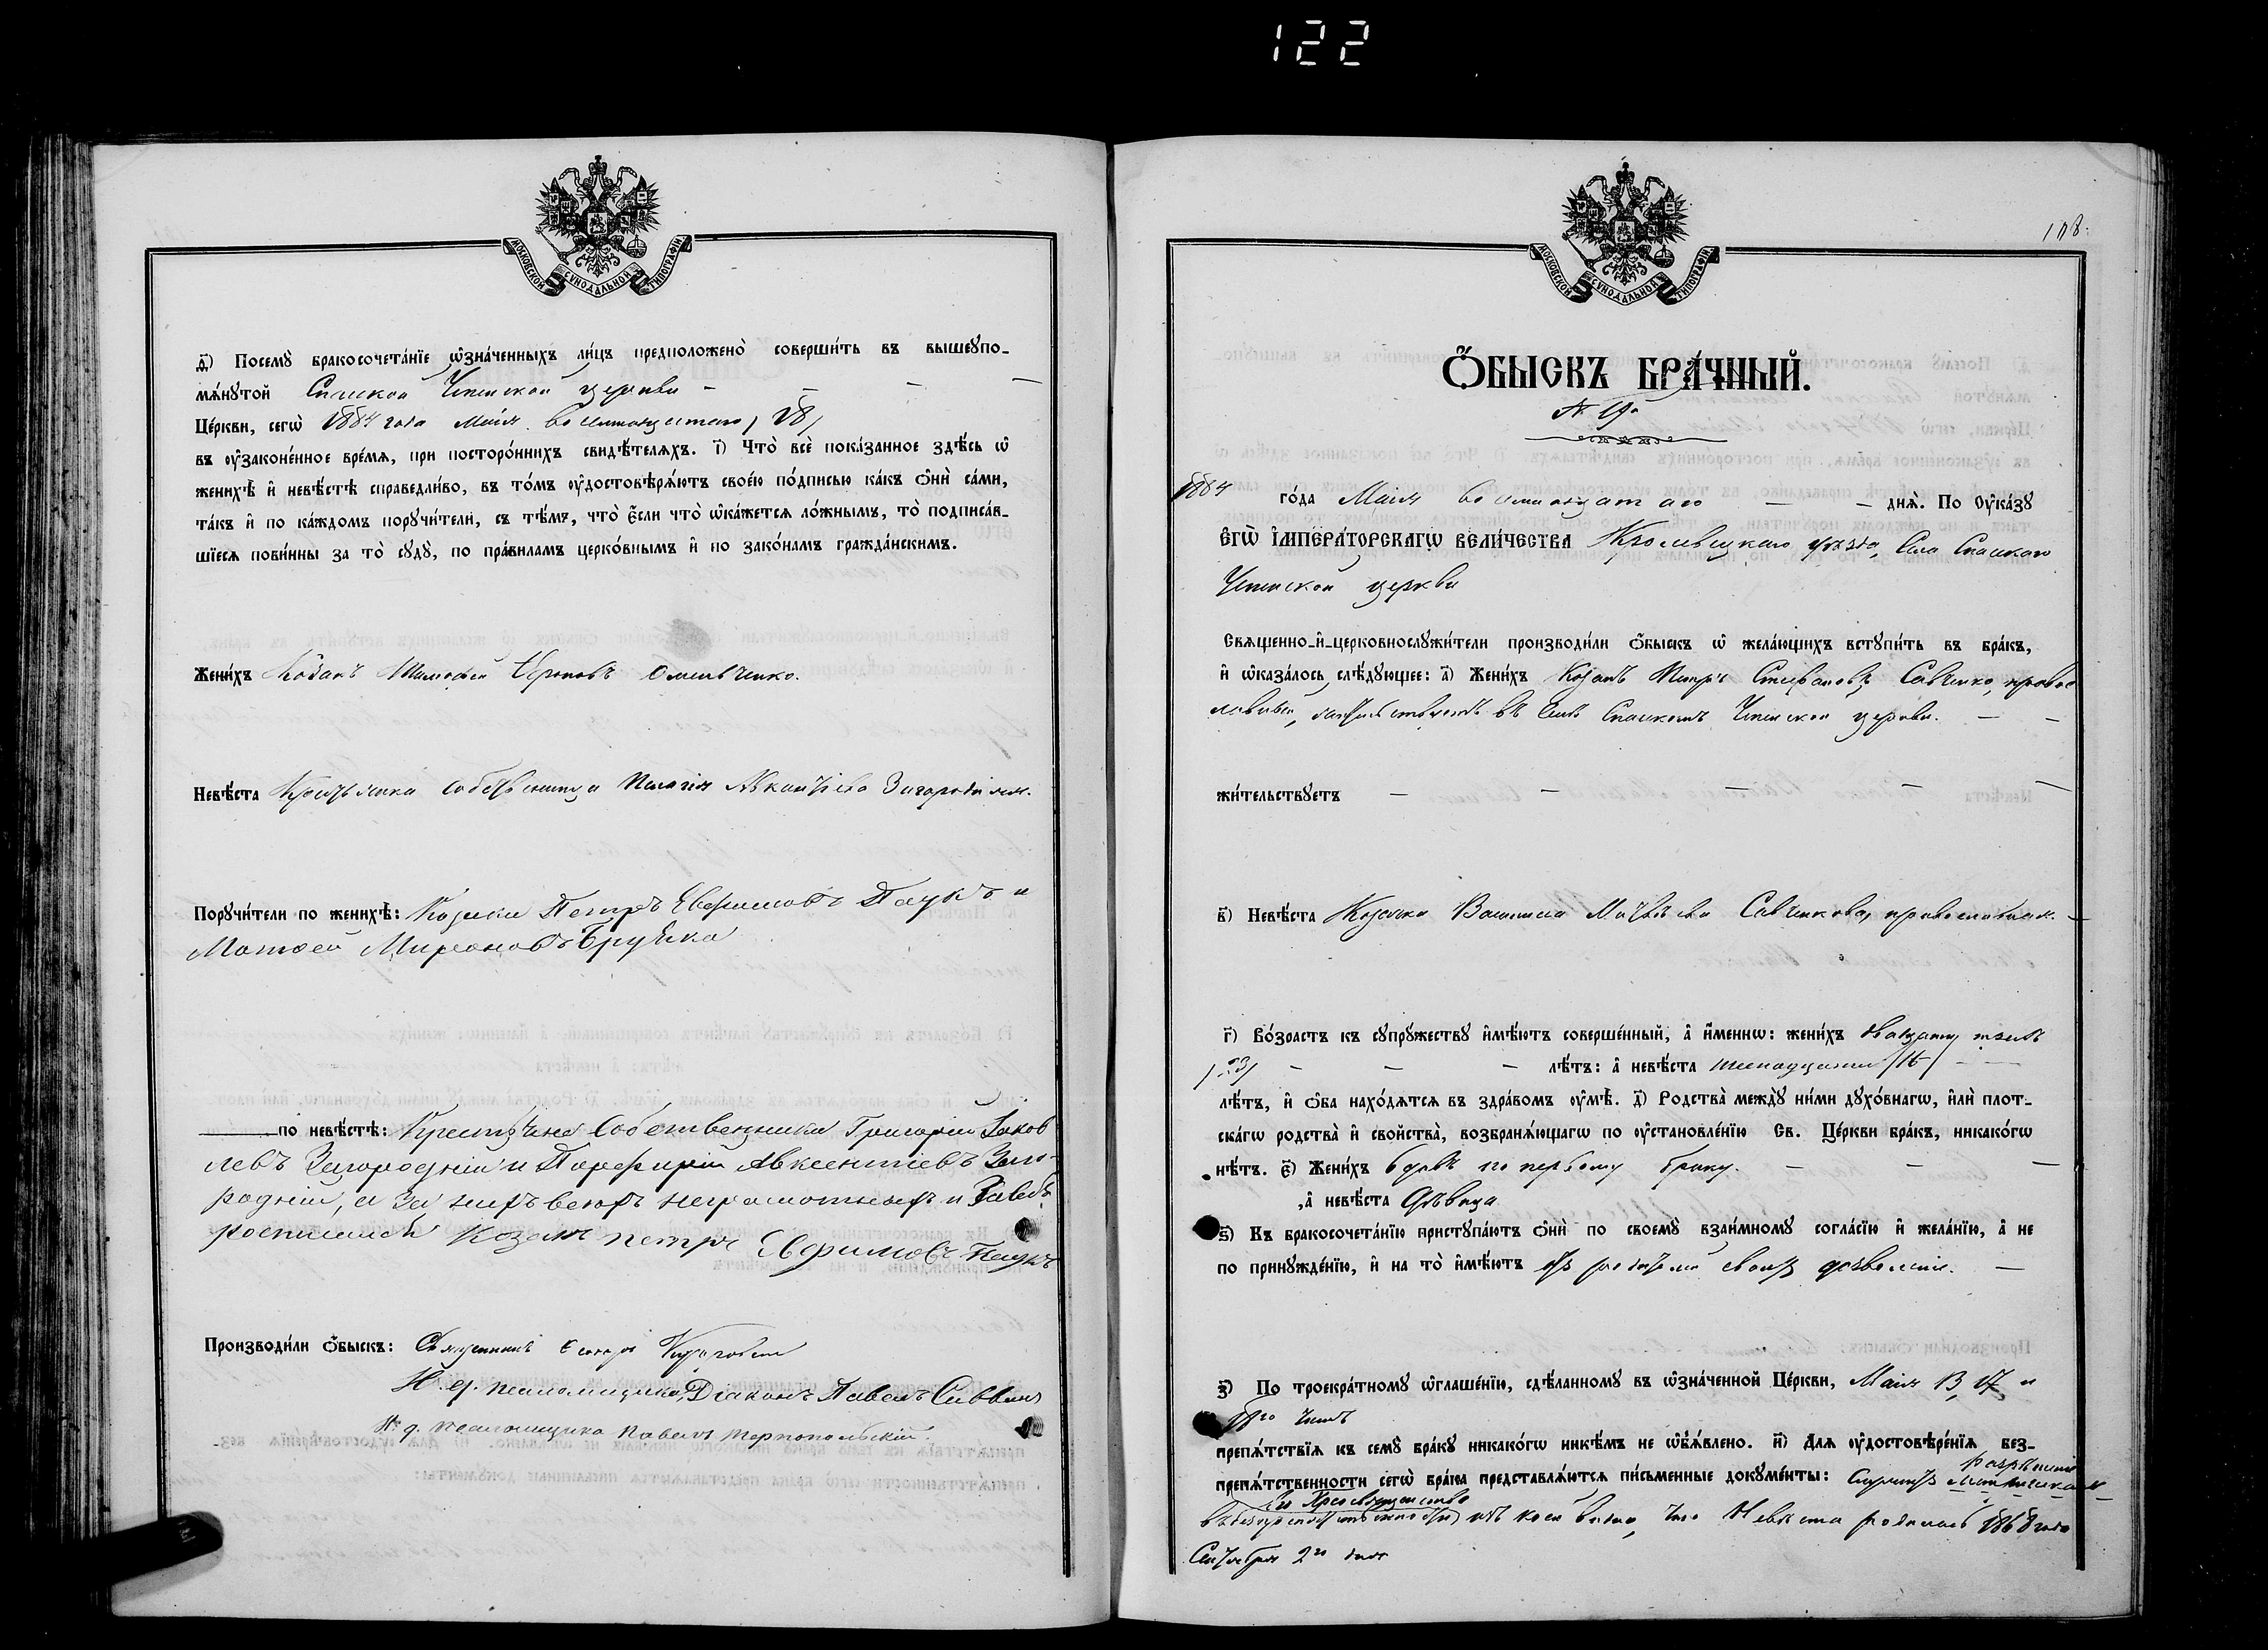 122
МОСКОВСКОЙ СѴНОДАЛЬНОЙ ТИПОГРАФІИ
д҃) Посемꙋ̀ бракосочета́нїе ѡ҆зна́ченныхъ ли́цъ предположено̀ соверши́ть въ вышеꙋпо-
мѧ́нꙋтой Спаской Успенской церкви
Це́ркви, сегѡ̀ 1884 года Маія восемнадцатаго /18/
въ ᲂу҆зако́ненное вре́мѧ, при посторо́ннихъ свидѣ́телѧхъ. і҃) Что̀ всѐ пока́занное здѣ́сь ѡ҆
женихѣ̀ и҆ невѣ́стѣ справедли́во, въ то́мъ ᲂу҆достовѣрѧ́ютъ свое́ю по́дписью ка́къ ѻ҆нѝ са́ми,
та́къ и҆ по ка́ждомъ порꙋчи́тели, съ тѣ́мъ, что̀ є҆́сли что̀ ѡ҆ка́жетсѧ ло́жнымъ, то̀ подписа́в-
шїесѧ пови́нны за то̀ сꙋдꙋ̀, по пра́виламъ церко́внымъ и҆ по зако́намъ гражда́нскимъ.
Жени́хъ Козакъ Тимофей
Невѣ́ста Крестьянка собственница Пелагія Авксентіева Загородняя.
Порꙋчи́тели по женихѣ̀: Козаки Петръ Евфимовъ Паукъ и
Матвей Мироновъ
по невѣ́стѣ: Крестьяне Собственники Григорій Яков
левъ Загородній и Порфирій Авксентіевъ Заго-
родній, а за нихъ всехъ неграмотныхъ и За себя
росписался Козакъ петръ Ефимовъ Паукъ
Производи́ли ѻ҆́быскъ: Священникъ
И. д. псаломщика, Діаконъ Павелъ Саввинъ
И. д. псаломщика Павелъ Тернопольскій.
118.
МОСКОВСКОЙ СѴНОДАЛЬНОЙ ТИПОГРАФІИ
Ѻ҆́БЫСКЪ БРА́ЧНЫЙ.
№ 19.
1884 го́да Маія восемнадцатаго днѧ̀. По ᲂу҆ка́зꙋ
Е҆ГѠ̀ І҆МПЕРА́ТОРСКАГѠ ВЕЛИ́ЧЕСТВА Кролевецкаго уѣзда, Села Спаскаго
Успенской церкви
Свѧщенно-и҆-церковнослꙋжи́тели производи́ли ѻ҆́быскъ ѡ҆ жела́ющихъ встꙋпи́ть въ бра́къ,
и҆ ѡ҆каза́лось слѣ́дꙋющее: а҃) Жени́хъ Козакъ Петръ Стефановъ Савченко, право
славный, жительствуетъ въ Селѣ Спаскомъ Успенской церкви.
жи́тельствꙋетъ
в҃) Невѣ́ста Козачка Васса Савченкова, православная.
г҃) Во́зрастъ къ сꙋпрꙋ́жествꙋ и҆мѣ́ютъ соверше́нный, а҆ и҆́менно: жени́хъ двадцати трехъ
/23/ лѣ́тъ: а҆ невѣ́ста шеснадцати /16/
лѣ́тъ, и҆ ѻ҆́ба нахо́дѧтсѧ въ здра́вомъ ᲂу҆мѣ̀. д҃) Родства̀ междꙋ̀ ни́ми дꙋхо́внагѡ, и҆лѝ плот-
ска́гѡ родства̀ и҆ сво́йства, возбранѧ́ющагѡ по ᲂу҆становле́нїю Св. Це́ркви бра́къ, никако́гѡ
нѣ́тъ. є҃) Жени́хъ вдовъ по первому браку.
, а҆ невѣ́ста дѣвица
ѕ҃) Къ бракосочета́нїю пристꙋпа́ютъ ѻ҆нѝ по своемꙋ̀ взаи́мномꙋ согла́сїю и҆ жела́нїю, а҆ не
по принꙋжде́нїю, и҆ на то̀ и҆мѣ́ютъ отъ родителей своихъ дозволеніе.
з҃) По троекра́тномꙋ ѡ҆глаше́нїю, сдѣ́ланномꙋ въ ѡ҆зна́ченной Це́ркви, Маія 13, 17 и
18го числъ
препѧ́тствїѧ къ семꙋ̀ бра́кꙋ никако́гѡ никѣ́мъ не ѡ҆б̾ѧ́влено. и҃) Длѧ ᲂу҆достовѣре́нїѧ без-
препѧ́тственности сегѡ̀ бра́ка представлѧ́ютсѧ пи́сьменные докꙋме́нты: разрѣшеніе
Его Преосвященства
изъ коей видно, что Невѣста родилась 1868 года
Сентября 2го дня